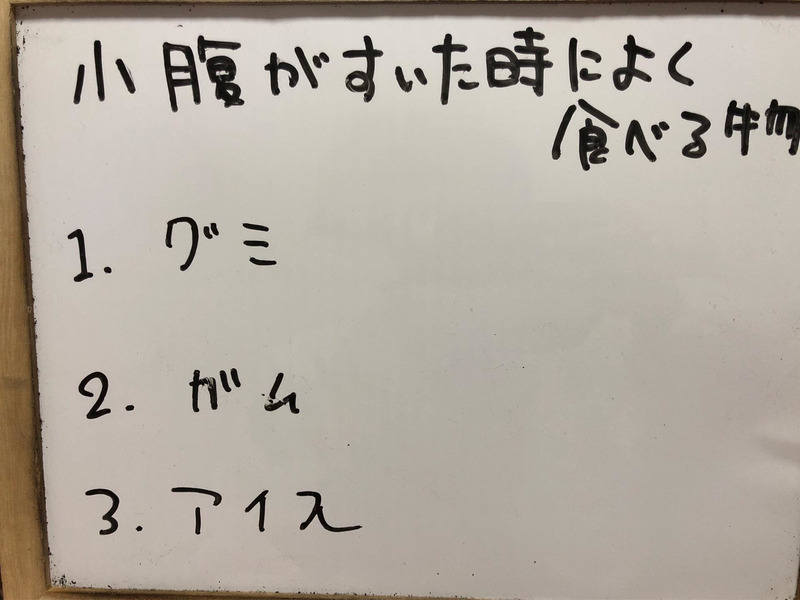 小腹がすいた時によく
食べる物
1. グミ
2. ガム
3. アイス